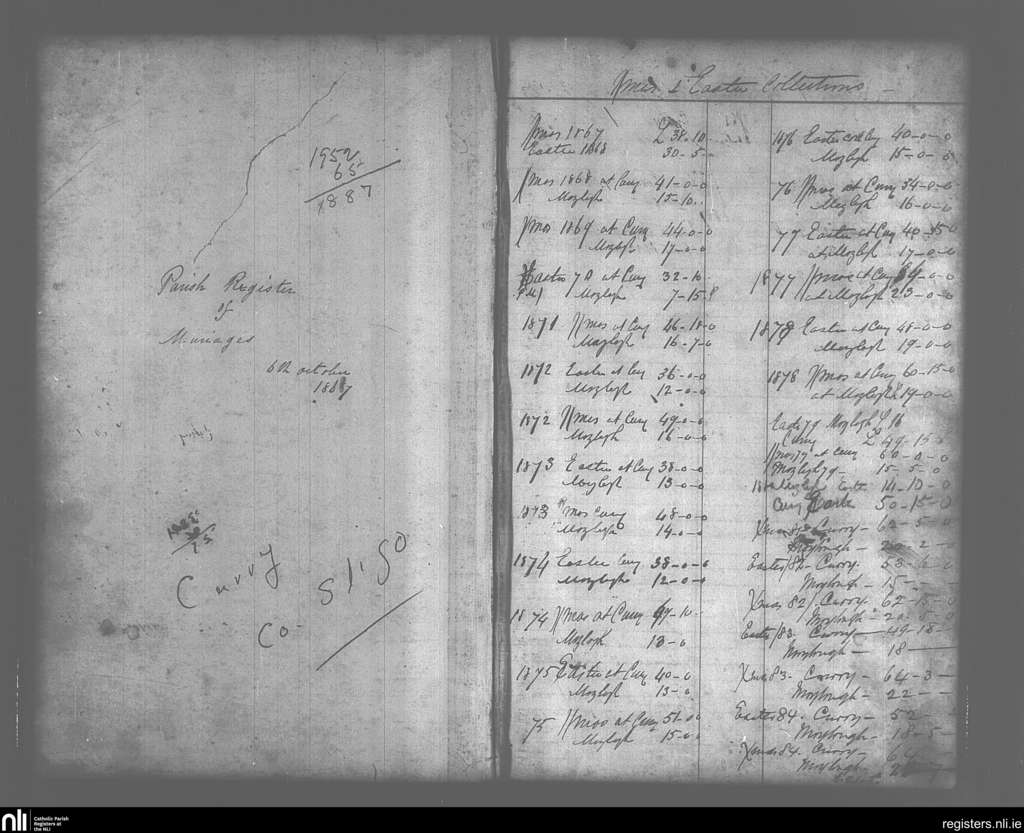 1952
65
1887
Parish Register
of
Marriages
6th october
1887
Curry
Co- Sligo
Xmas & Easter Collections
Xmas 1867 £38-10-
Easter 1868 30-5-
Xmas 1868 at Curry 41-0-0
Moylogh 15-10.
Xmas 1869 at Curry 44-0-0
Moylogh 17-0-0
Easter 70 at Curry 32-10-
Moylogh 7-15-8
1871 Xmas at Curry 46-18-0
Moylogh 16-7-0
1872 Easter at Curry 36-0-0
Moylogh 12-0-0
1872 Xmas at Curry 49-0-0
Moylogh 16-0-0
1873 Easter at Curry 38-0-0
Moylogh 13-0-0
1873 Xmas Curry 48-0-0
Moylogh 14-0-0
1874 Easter Curry 38-0-0
Moylogh 12-0-0
1874 Xmas at Curry 47-10-
Moylogh 13-0
1875 Easter at Curry 40-0
Moylogh 13-0
75 Xmas at Curry 51-00
Moylogh 15-0-0
1876 Easter Curry 40-0-0
Moylogh 15-0-0
76 Xmas at Curry 54-0-0
Moylogh 16-0-0
77 Easter at Curry 40-15-0
at Moylogh 17-0-0
1877 Xmas at Curry 54-0-0
at Moylogh 23-0-0
1878 Easter at Curry 48-0-0
Moylogh 19-0-0
1878 Xmas at Curry 60-15-0
at Moylogh 19-0-0
Easter 79 Moylogh £16
Curry £49-15-0
Xmas 79 at Curry 60-0-0
Moylogh 79- 15-5-0
Moylogh Easter 14-10-0
Curry Easter 50-15-0
Xmas Curry- 62-5-0
Moylough-
Easter/82- Curry- 53-6-0
Moylough- 15-
Xmas 82/ Curry- 62-15-0
Moylough- 20-
Easter/83- Curry- 49-18-
Moylough- 18-
Xmas 83- Curry- 64-3-
Moylough- 22-
Easter 84- Curry- 52-
Moylough- 18-5-
Xmas 84- Curry-
Moylough-
nli Catholic Parish
Registers at
the NLI
registers.nli.ie